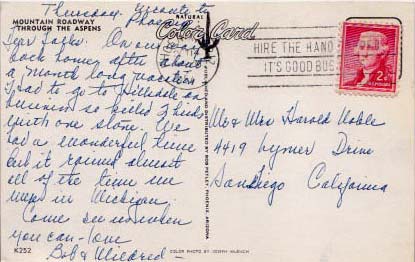 Thursday. Enroute to
Phoenix
MOUNTAIN ROADWAY
THROUGH THE ASPENS
NATURAL
Color Card
Dear Folks. On our way
back home after about
a month long vacation
I had to go to Hillsdale on
business so killed 2 birds
with one stone. We
had a wonderful time
but it rained almost
all of the time we
were in Michigan.
Come see us when
you can - love
Bob & Mildred -
K252
COLOR PHOTO BY JOSEPH MUENCH
PUBLISHED AND DISTRIBUTED BY BOB PETLEY, PHOENIX, ARIZONA
HIRE THE HAND
IT'S GOOD BUS
2¢
Mr & Mrs Harold Noble
4419 Lymer Drive
San Diego California